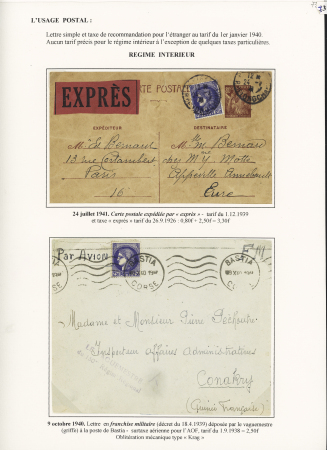 L'USAGE POSTAL :
Lettre simple et taxe de recommandation pour l'étranger au tarif du 1er janvier 1940.
Aucun tarif précis pour le régime intérieur à l'exception de quelques taxes particulières.
REGIME INTERIEUR
EXPRÈS
CARTE POSTALE
EXPÉDITEUR
DESTINATAIRE
13 rue Cortambert
chez Mr Y. Motte
Appeville Annebault
Paris
16
Eure
24 juillet 1941. Carte postale expédiée par « exprès » - tarif du 1.12.1939
et taxe « exprès » tarif du 26.9.1926 : 0,80f + 2,50f = 3,30f
Par Avion
BASTIA
CORSE
BASTIA
Madame et Monsieur
Inspecteur Affaires Administratives
Conakry
(Guinée Française)
9 octobre 1940. Lettre en franchise militaire (décret du 18.4.1939) déposée par le vaguemestre
(griffe) à la poste de Bastia - surtaxe aérienne pour l'AOF, tarif du 1.9.1938 = 2,50f
Oblitération mécanique type « Krag »